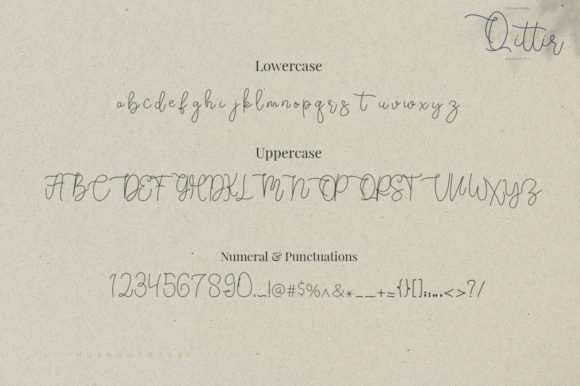 Qittir
Lowercase
a b c d e f g h i j k l m n o p q r s t u v w x y z
Uppercase
A B C D E F G H I J K L M N O P Q R S T U V W X Y Z
Numeral & Punctuations
1234567890.,_!@#$%^&*__+={}[];:,.<>?/